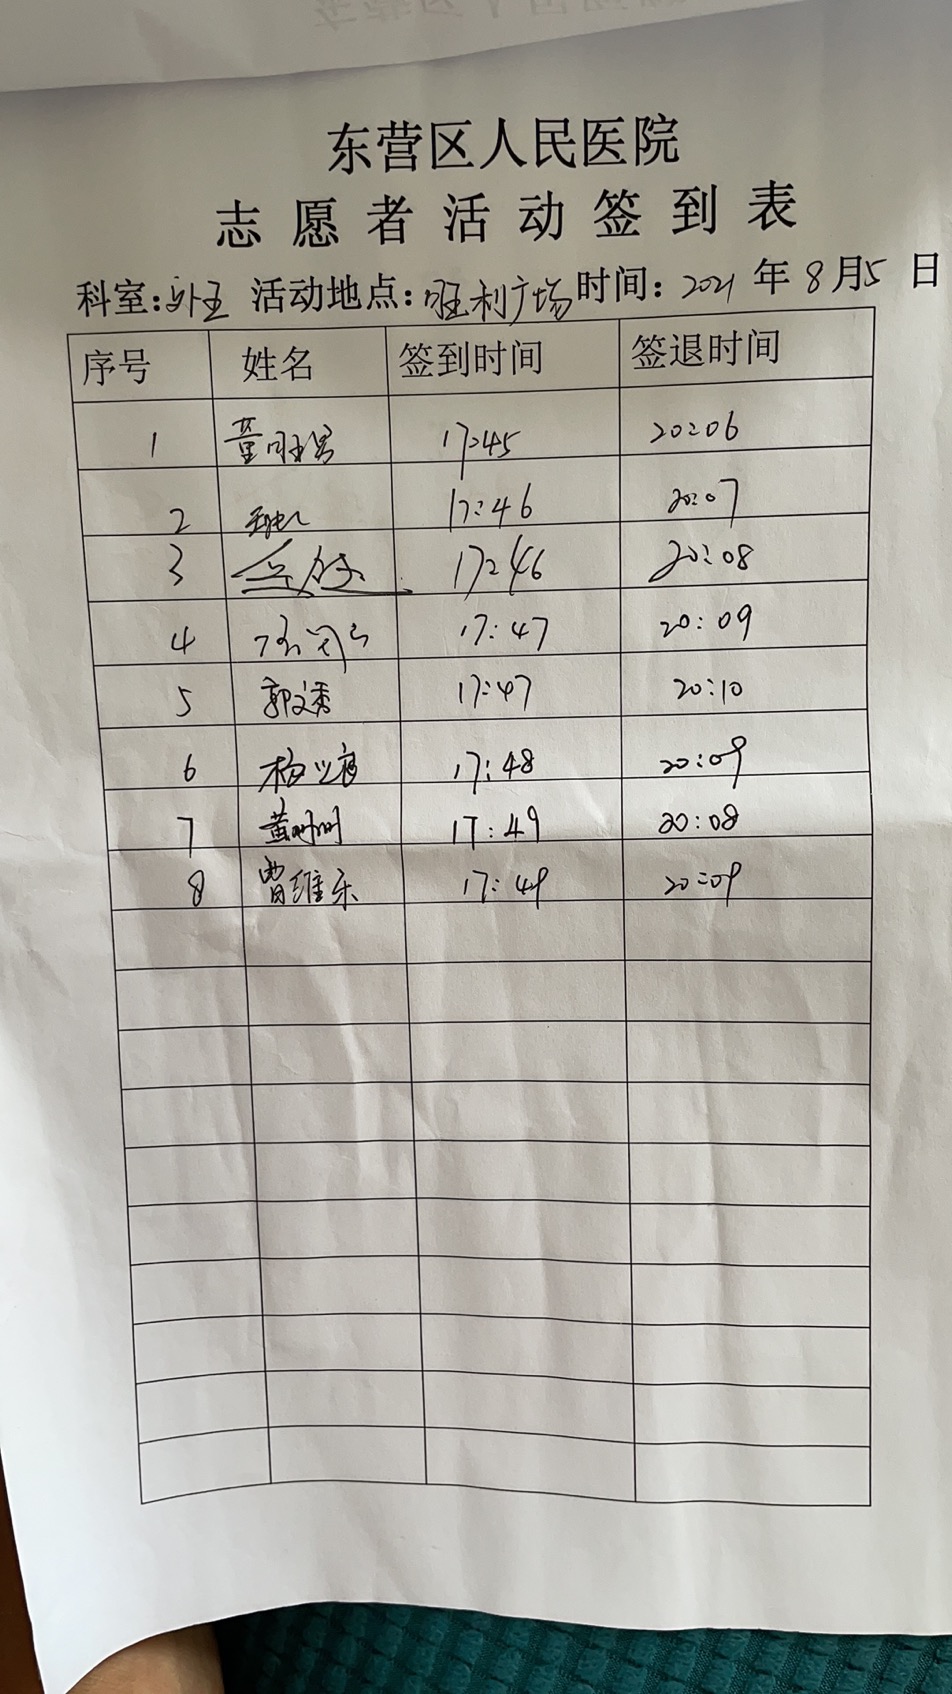 东营区人民医院
志愿者活动签到表
科室: 活动地点:胜利广场 时间: 2021 年 8 月 5 日
序号 姓名 签到时间 签退时间
1 17:45 20:06
2 17:46 20:07
3 17:46 20:08
4 17:47 20:09
5 郭文秀 17:47 20:10
6 17:48 20:09
7 17:49 20:08
8 曹维乐 17:49 20:09